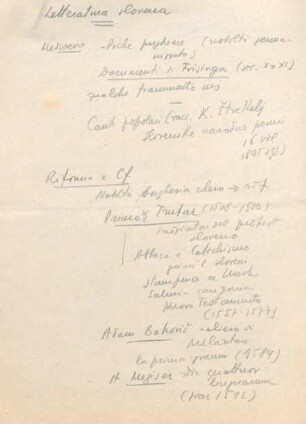 Letteratura slovena
Medioevo – Poche preghiere (nobiltà germa-
nizzata)
Documenti di Frisinga (sec. X-XI)
qualche frammento ms
Canti popolari (racc. K. Štrekelj
Slovenske narodne pesmi
1895
Riforma e Cf
Nobiltà, borghesia, clero → rif
Primož Trubar (1508-1586)
iniziatore del protest
sloveno
Abbaco e Catechismo
primi l. sloveni
stampera a
Salmi – canzoni
Nuovo Testamento
(1557-1577)
Adam Bohorič – allievo di
Melantone
la prima gramm (1584)
H. Megiser – Dic. quattuor
linguarum
(1592)